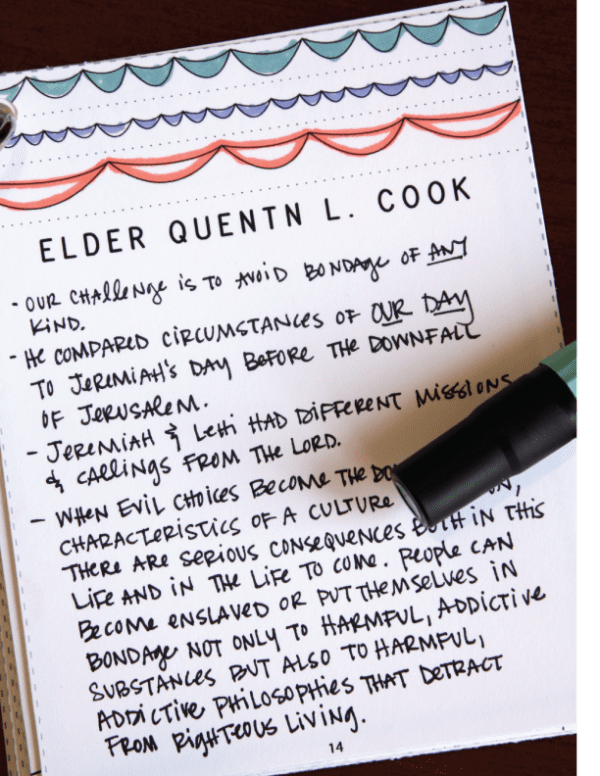 ELDER QUENTN L. COOK
- OUR CHALLENGE IS TO AVOID BONDAGE OF ANY
KIND.
- HE COMPARED CIRCUMSTANCES OF OUR DAY
TO JEREMIAH'S DAY BEFORE THE DOWNFALL
OF JERUSALEM.
- JEREMIAH & LEHI HAD DIFFERENT MISSIONS
& CALLINGS FROM THE LORD.
- WHEN EVIL CHOICES BECOME THE
CHARACTERISTICS OF A CULTURE
THERE ARE SERIOUS CONSEQUENCES BOTH IN THIS
LIFE AND IN THE LIFE TO COME. PEOPLE CAN
BECOME ENSLAVED OR PUT THEMSELVES IN
BONDAGE NOT ONLY TO HARMFUL, ADDICTIVE
SUBSTANCES BUT ALSO TO HARMFUL,
ADDICTIVE PHILOSOPHIES THAT DETRACT
FROM RIGHTEOUS LIVING.
14